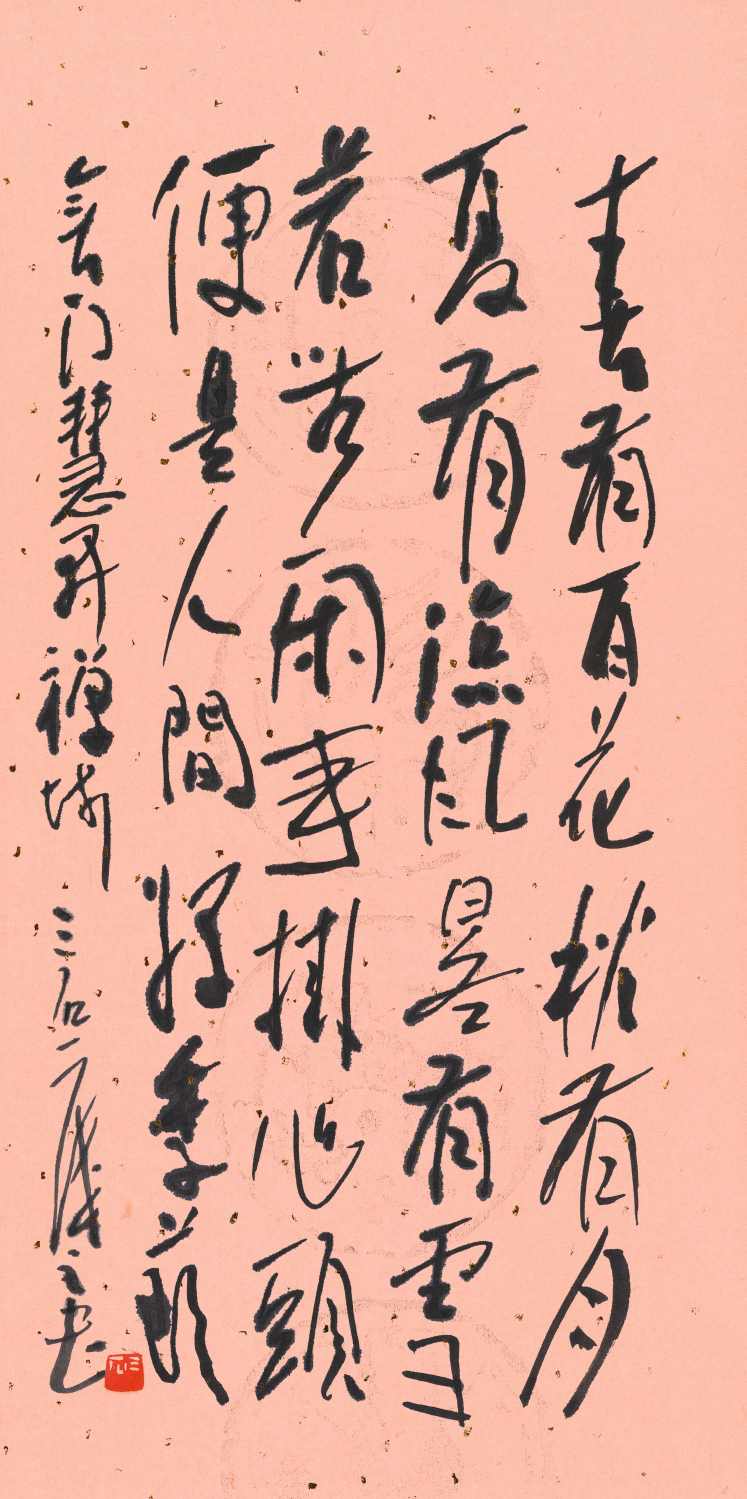 春有百花秋有月
夏有涼風冬有雪
若無閑事掛心頭
便是人間好季節
門慧開禪師